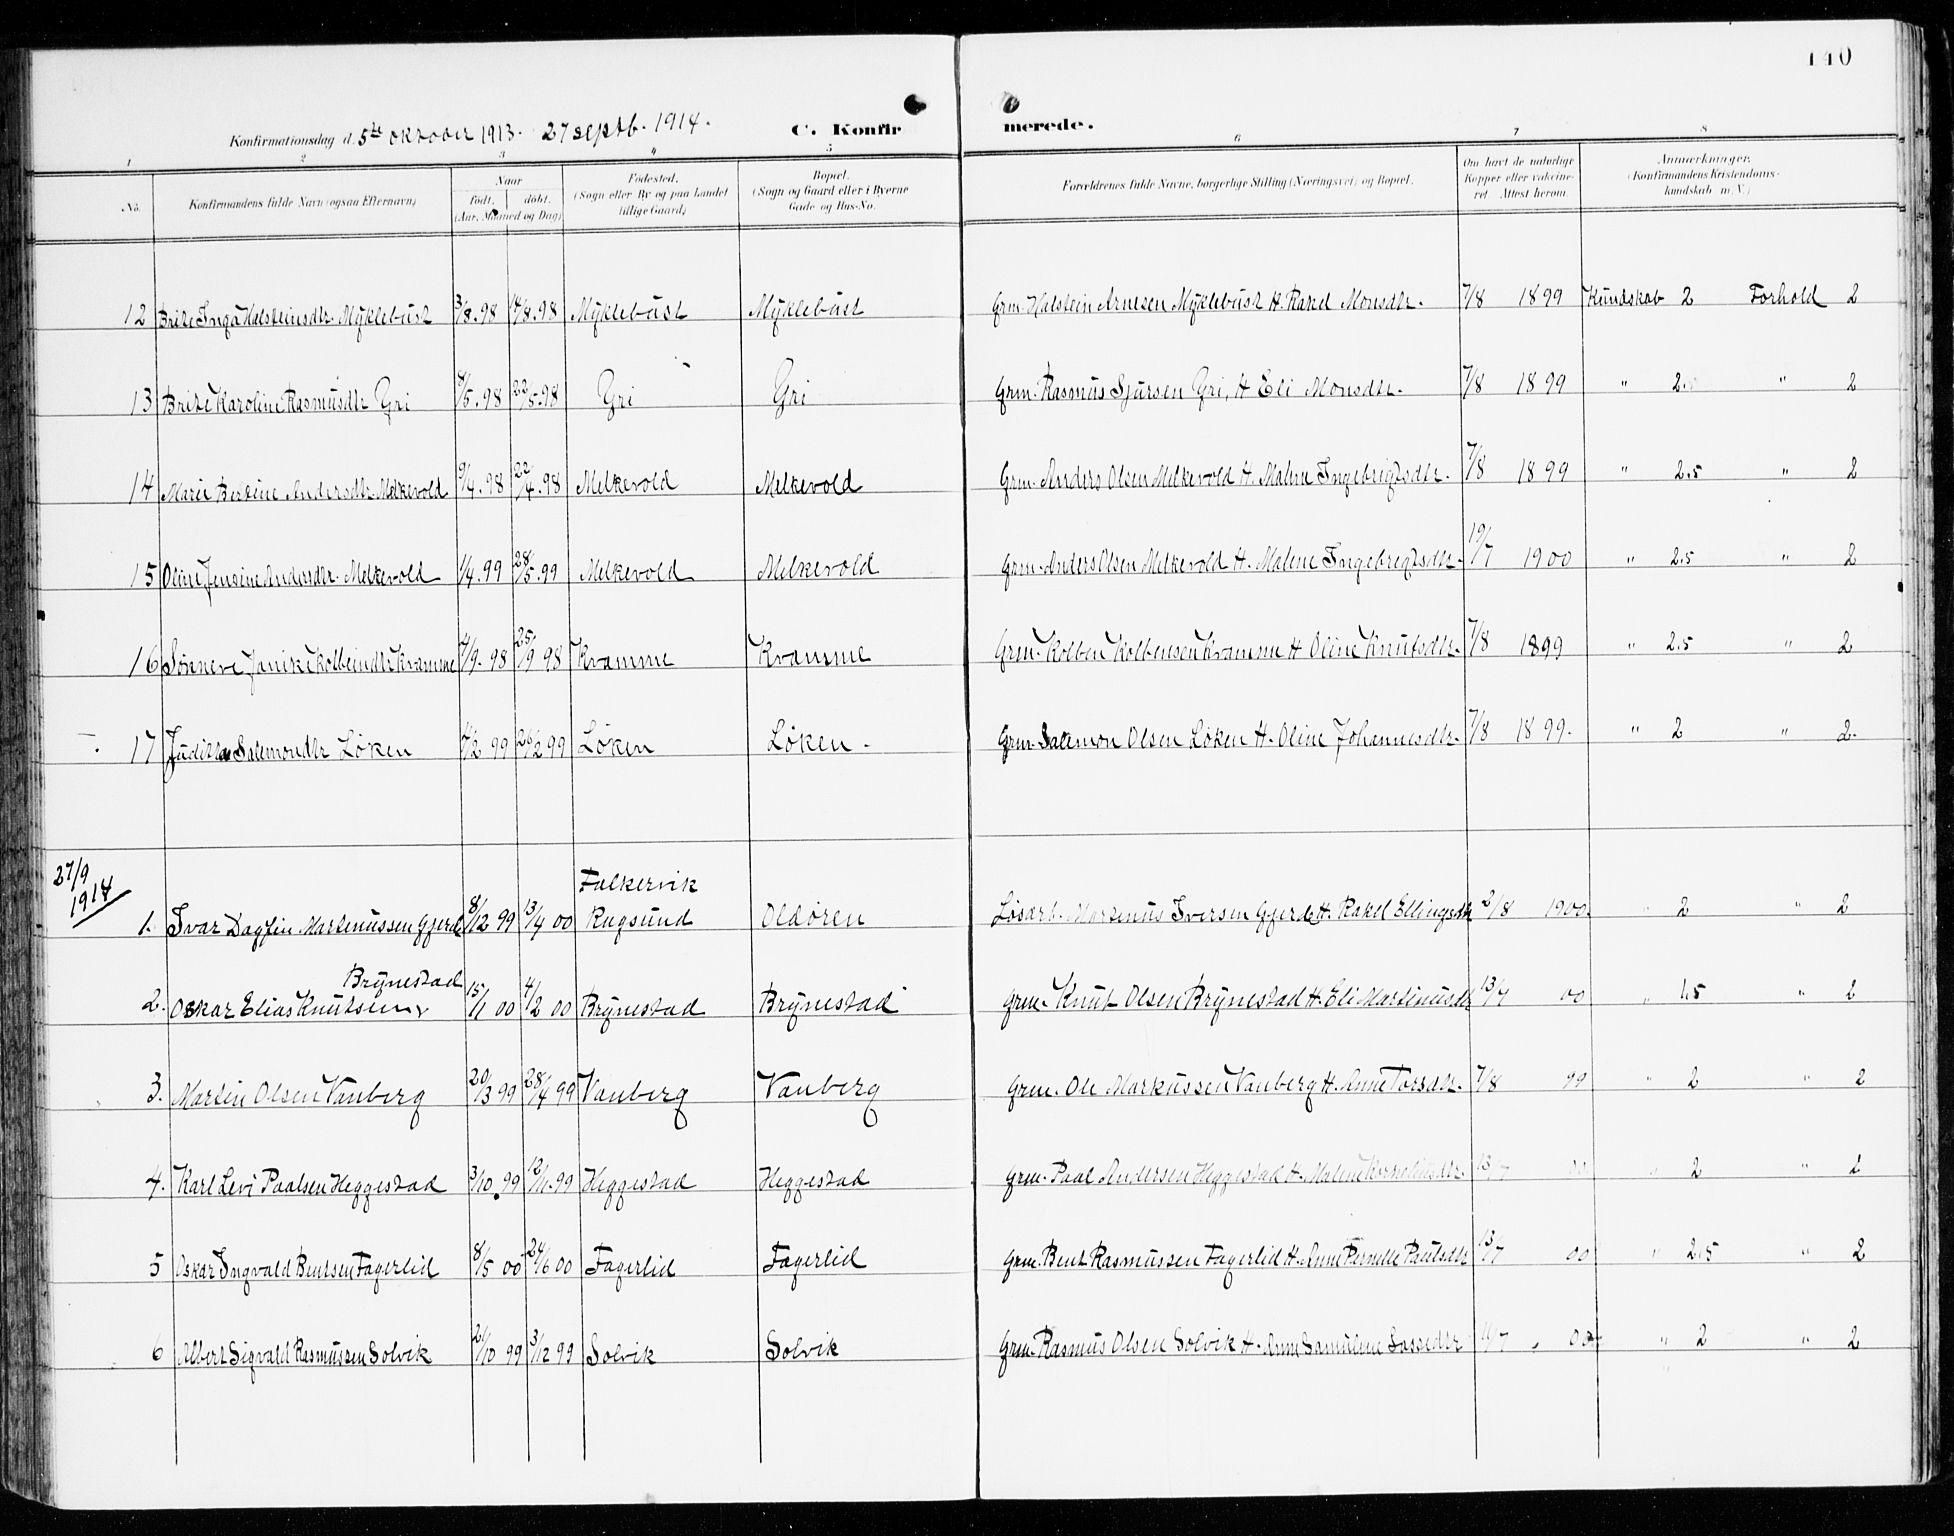 140
Konfirmationsdag d. 5te oktober 1913. 27 septb. 1914.
C. Konfirmerede.
1 2 3 4 5 6 7 8
No. Konfirmandens fulde Navn (ogsaa Efternavn) Naar født. døbt. (Aar, Maaned og Dag) Fødested. (Sogn eller By og paa Landet tillige Gaard) Bopæl. (Sogn og Gaard eller i Byerne Gade og Hus-No. Forældrenes fulde Navne, borgerlige Stilling (Næringsvei) og Bopæl. Om havt de naturlige Kopper eller vaccineret Attest herom. Anmærkninger. (Konfirmandens Kristendomskundskab m. V.)
12 Brite Inga Halsteinsdtr. Myklebust 3/8.98 14/8.98 Myklebust Myklebust Grm. Halstein Arnesen Myklebust H. Rakel Monsdtr. 7/8 1899 Kundskab 2 Forhold 2
13 Brite Karoline Rasmusdtr Gri 8/5.98 22/5.98 Gri Gri Grm. Rasmus Sjursen Gri, H Eli Monsdtr. 7/8 1899 " 2. " 2
14 Marie Bertine Andersdtr Melkevold 9/4.98 22/4.98 Melkevold Melkevold Grm. Anders Olsen Melkevold H. Malene Ingebrigtsdtr. 7/8 1899 " 2.5 " 2
15 Oline Jensine Andersdtr. Melkevold 1/4.99 28/5.99 Melkevold Melkevold Grm. Anders Olsen Melkevold H. Malene Ingebregtsdtr. 19/7 1900 " 2.5 " 2
16 Sønneve Janike Kolbeindtr Kvamme 4/9.98 25/9 98 Kvamme Kvamme Grm. Kolben Kolbensen Kvamme H Oline Knutsdtr. 7/8 1899 " 2.5 " 2
17 Juditha Salemondtr Løken 7/2 99 26/2 99 Løken Løken. Grm. Salemon Olsen Løken H. Oline Johannesdtr. 7/8 1899. " 2 " 2.
27/9 1914
Falkervik
1. Ivar Dagfin Martinussen Gjerde 8/12 99 13/4 00 Rugsund Oldøren Løsarb. Martinus Iversen Gjerde H. Rakel Ellingsdtr 2/8 1900. " 2 " 2
Brynestad
2. Oskar Elias Knutsen 15/1 00 4/2 00 Brynestad Brynestad Grm. Knut Olsen Brynestad H. Eli Martinusdtr 13/7 00 " 1.5 " 2
3. Martin Olsen Vanberg 20/3 99 28/4 99 Vanberg Vanberg Grm. Ole Markussen Vanberg H. Anne Torsdtr. 7/8 99 " 2 " 2
4. Karl Levi Paalsen Heggestad 3/10.99 12/11.99 Heggestad Heggestad Grm. Paal Andersen Heggestad H. Malene 13/7 00 " 2 " 2
5 Oskar Ingvald Bentsen Fagerlid 8/5 00 24/6 00 Fagerlid Fagerlid Grm. Bent Rasmussen Fagerlid H. Anne Pernelle Paulsdtr 13/7 00 " 2.5 " 2
6 Albert Sigvald Rasmussen Solvik 21/10 99 3/12 99 Solvik Solvik Grm. Rasmus Olsen Solvik H. Anne 11/7 " 00 " 2 " 2